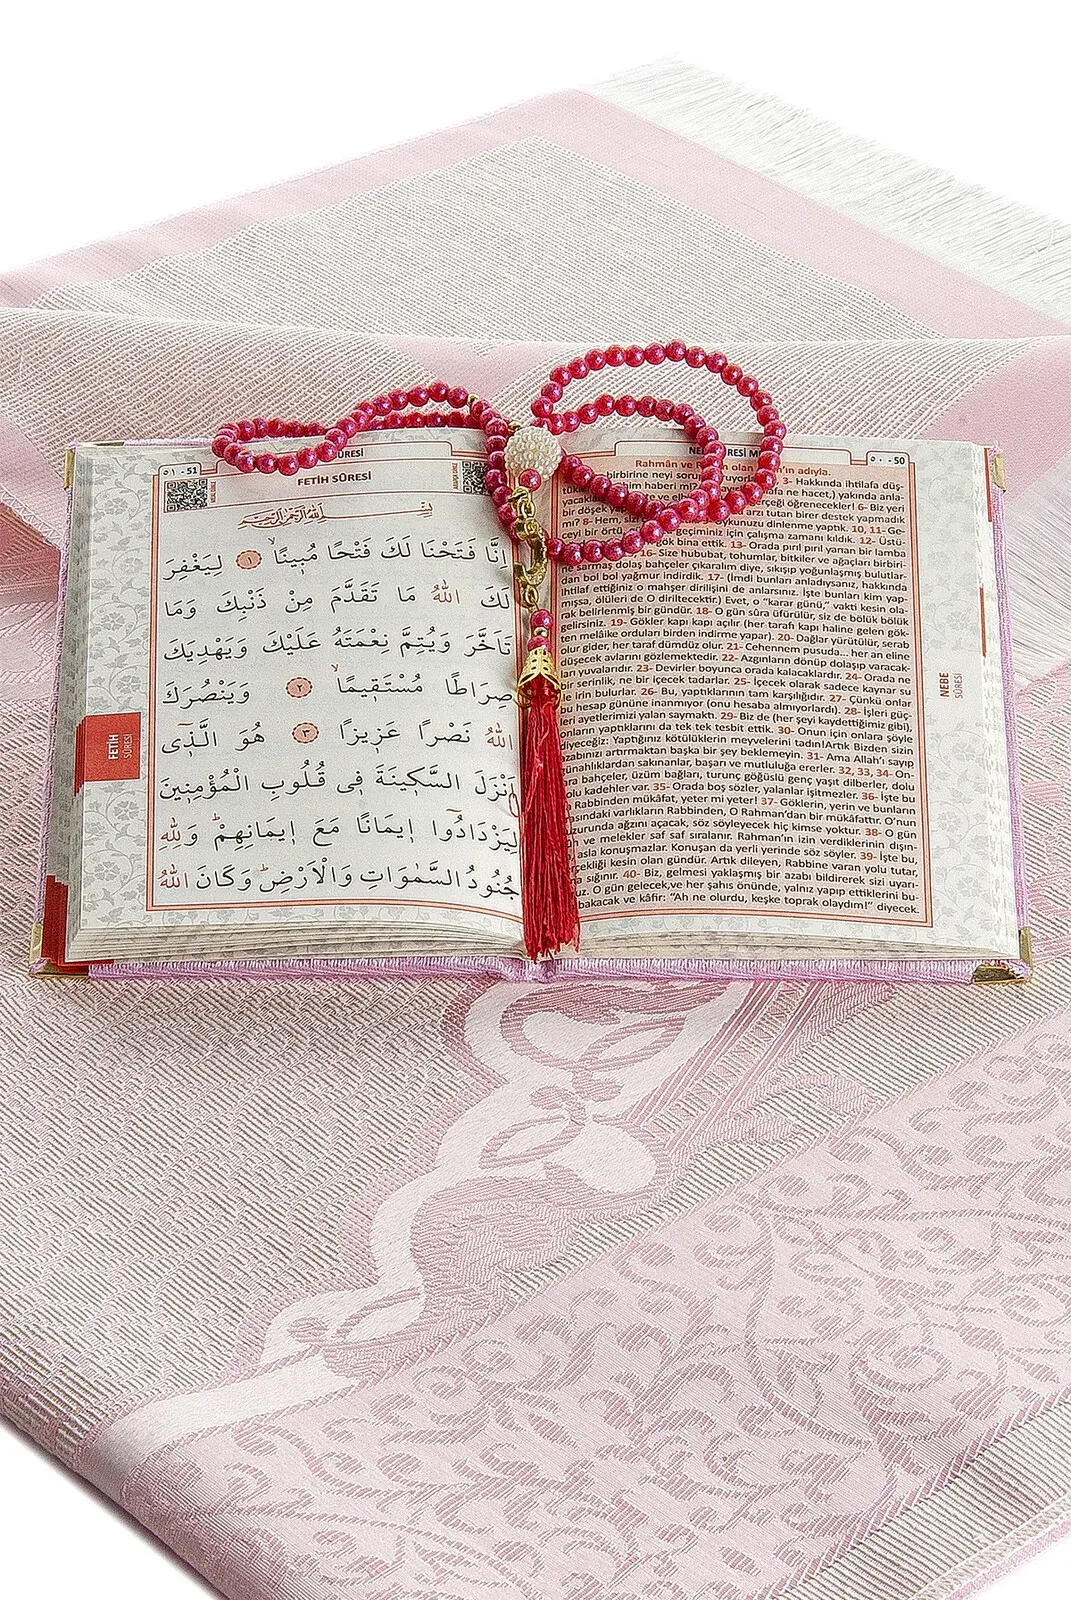 ٥١ - 51
FETİH SÛRESİ
اِنَّا فَتَحْنَا لَكَ فَتْحًا مُب۪ينًاۙ ﴿١﴾ لِيَغْفِرَ
لَكَ اللّٰهُ مَا تَقَدَّمَ مِنْ ذَنْبِكَ وَمَا
تَاَخَّرَ وَيُتِمَّ نِعْمَتَهُ عَلَيْكَ وَيَهْدِيَكَ
صِرَاطًا مُسْتَق۪يمًاۙ ﴿٢﴾ وَيَنْصُرَكَ
اللّٰهُ نَصْرًا عَز۪يزًا ﴿٣﴾ هُوَ الَّذ۪ٓى
اَنْزَلَ السَّك۪ينَةَ ف۪ى قُلُوبِ الْمُؤْمِن۪ينَ
لِيَزْدَادُٓوا ا۪يمَانًا مَعَ ا۪يمَانِهِمْۜ وَلِلّٰهِ
جُنُودُ السَّمٰوَاتِ وَالْاَرْضِۜ وَكَانَ اللّٰهُ
FETİH
SÛRESİ
٥٠ - 50
Rahmân ve olan adıyla.
birbirine neyi 3- Hakkında ihtilafa düş-
haberi mi? ne hacet,) yakında anla-
ve gerçeği öğrenecekler! 6- Biz yeri
bir döşek tutan birer destek yapmadık
mi? 8- Hem, uykunuzu dinlenme yaptık. 10, 11- Ge-
ceyi bir örtü, geçiminiz için çalışma zamanı kıldık. 12- Üstü-
gök bina ettik. 13- Orada pırıl pırıl yanan bir lamba
16- Size hububat, tohumlar, bitkiler ve ağaçları birbiri-
ne sarmaş dolaş bahçeler çıkaralım diye, sıkışıp yoğunlaşmış bulutlar-
dan bol bol yağmur indirdik. 17- (İmdi bunları anladıysanız, hakkında
ihtilaf ettiğiniz o mahşer dirilişini de anlarsınız. İşte bunları kim yap-
mışsa, ölüleri de O diriltecektir) Evet, o "karar günü," vakti kesin ola-
rak belirlenmiş bir gündür. 18- O gün sûra üfürülür, siz de bölük bölük
gelirsiniz. 19- Gökler kapı kapı açılır (her tarafı kapı haline gelen gök-
ten melâike orduları birden indirme yapar). 20- Dağlar yürütülür, serab
olur gider, her taraf dümdüz olur. 21- Cehennem pusuda... her an eline
düşecek avlarını gözlemektedir. 22- Azgınların dönüp dolaşıp varacak-
ları yuvalarıdır. 23- Devirler boyunca orada kalacaklardır. 24- Orada ne
bir serinlik, ne bir içecek tadarlar. 25- İçecek olarak sadece kaynar su
ile irin bulurlar. 26- Bu, yaptıklarının tam karşılığıdır. 27- Çünkü onlar
bu hesap gününe inanmıyor (onu hesaba almıyorlardı). 28- İşleri güç-
leri ayetlerimizi yalan saymaktı. 29- Biz de (her şeyi kaydettiğimiz gibi),
onların yaptıklarını da tek tek tesbit ettik. 30- Onun için onlara şöyle
diyeceğiz: Yaptığınız kötülüklerin meyvelerini tadın!Artık Bizden sizin
azabınızı artırmaktan başka bir şey beklemeyin. 31- Ama Allah'ı sayıp
günahlıklardan sakınanlar, başarı ve mutluluğa ererler. 32, 33, 34- On-
lara bahçeler, üzüm bağları, turunç göğüslü genç yaşıt dilberler, dolu
dolu kadehler var. 35- Orada boş sözler, yalanlar işitmezler. 36- İşte bu
Rabbinden mükâfat, yeter mi yeter! 37- Göklerin, yerin ve bunların
arasındaki varlıkların Rabbinden, O Rahman'dan bir mükâfattır. O'nun
huzurunda ağzını açacak, söz söyleyecek hiç kimse yoktur. 38- O gün
ve melekler saf saf sıralanır. Rahman'ın izin verdiklerinin dışın-
asla konuşmazlar. Konuşan da yerli yerinde söz söyler. 39- İşte bu,
gerçekliği kesin olan gündür. Artık dileyen, Rabbine varan yolu tutar,
sığınır. 40- Biz, gelmesi yaklaşmış bir azabı bildirerek sizi uyar-
O gün gelecek,ve her şahıs önünde, yalnız yapıp ettiklerini bu-
bakacak ve kâfir: "Ah ne olurdu, keşke toprak olaydım!" diyecek.
NEBE
SÛRESİ